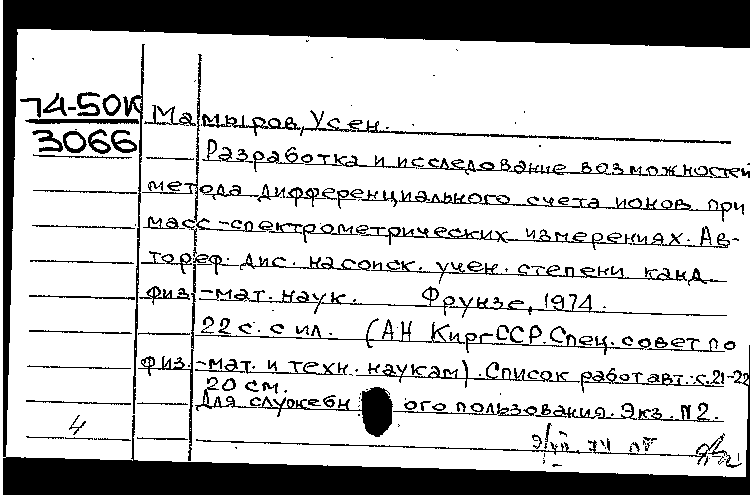 74-50К
3066
Мамыров, Усен.
Разработка и исследование возможностей
метода дифференциального счета ионов при
масс-спектрометрических измерениях. Ав-
тореф. дис. на соиск. учен. степени канд.
физ.-мат. наук. Фрунзе, 1974.
22 с. с ил. (АН КиргССР. Спец. совет по
физ.-мат. и техн. наукам). Список работ авт.: с. 21-22
20 см.
Для служебного пользования. Экз. №2.
4